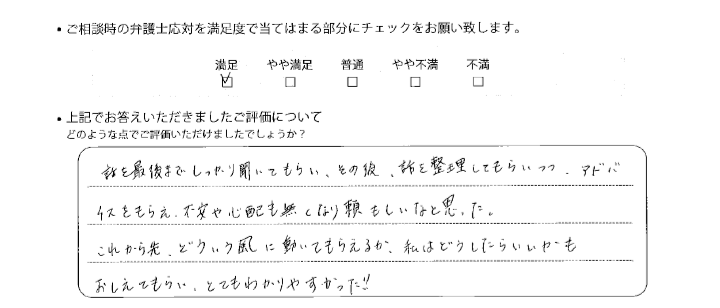 ・ご相談時の弁護士応対を満足度で当てはまる部分にチェックをお願い致します。
満足 やや満足 普通 やや不満 不満
・上記でお答えいただきましたご評価について
どのような点でご評価いただけましたでしょうか？
話を最後までしっかり聞いてもらい、その後、話を整理してもらいつつ、アドバ
イスをもらえ、不安や心配も無くなり頼もしいなと思った。
これから先、どういう風に動いてもらえるか、私はどうしたらいいかも
おしえてもらい、とてもわかりやすかった!!